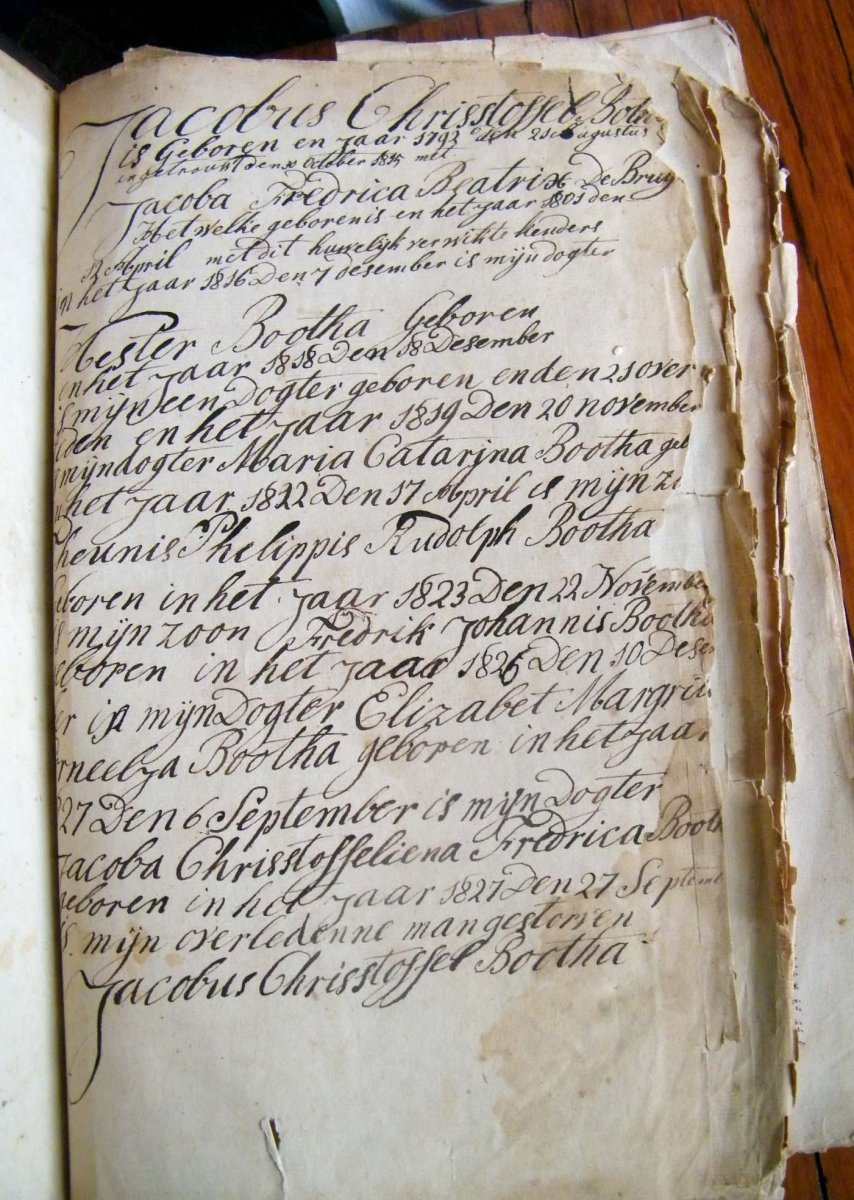 Jacobus Chrisstoffel
is Geboren en Jaar 1793 den 21 Augustus
en getrouwt den October 1815 met
Jacoba Fredrica Beatrix De Bruy
Het welke geboren is en het Jaar 1801 den
12 April met dit huwelyk verwikte kenders
in het Jaar 1816 Den 7 desember is mijn dogter
Hester Bootha Geboren
en het Jaar 1818 Den 18 Desember
is mijn een Dogter geboren en den 21 over
leden en het Jaar 1819 Den 20 november
is mijn dogter Maria Catarjna Bootha geb
het Jaar 1822 Den 17 April is mijn zo
Theunis Phelippis Rudolph Bootha
geboren in het Jaar 1823 Den 22 November
is mijn zoon Fredrik Johannis Bootha
geboren in het Jaar 1826 Den 10 Desem
er is mijn Dogter Elizabet Margri
rneelza Bootha geboren in het Jaar
827 Den 6 September is mijn Dogter
Jacoba Chrisstoffeliena Fredrica Booth
geboren in het Jaar 1827 Den 27 Septemb
is mijn overledenne man gestorven
Jacobus Chrisstoffel Bootha